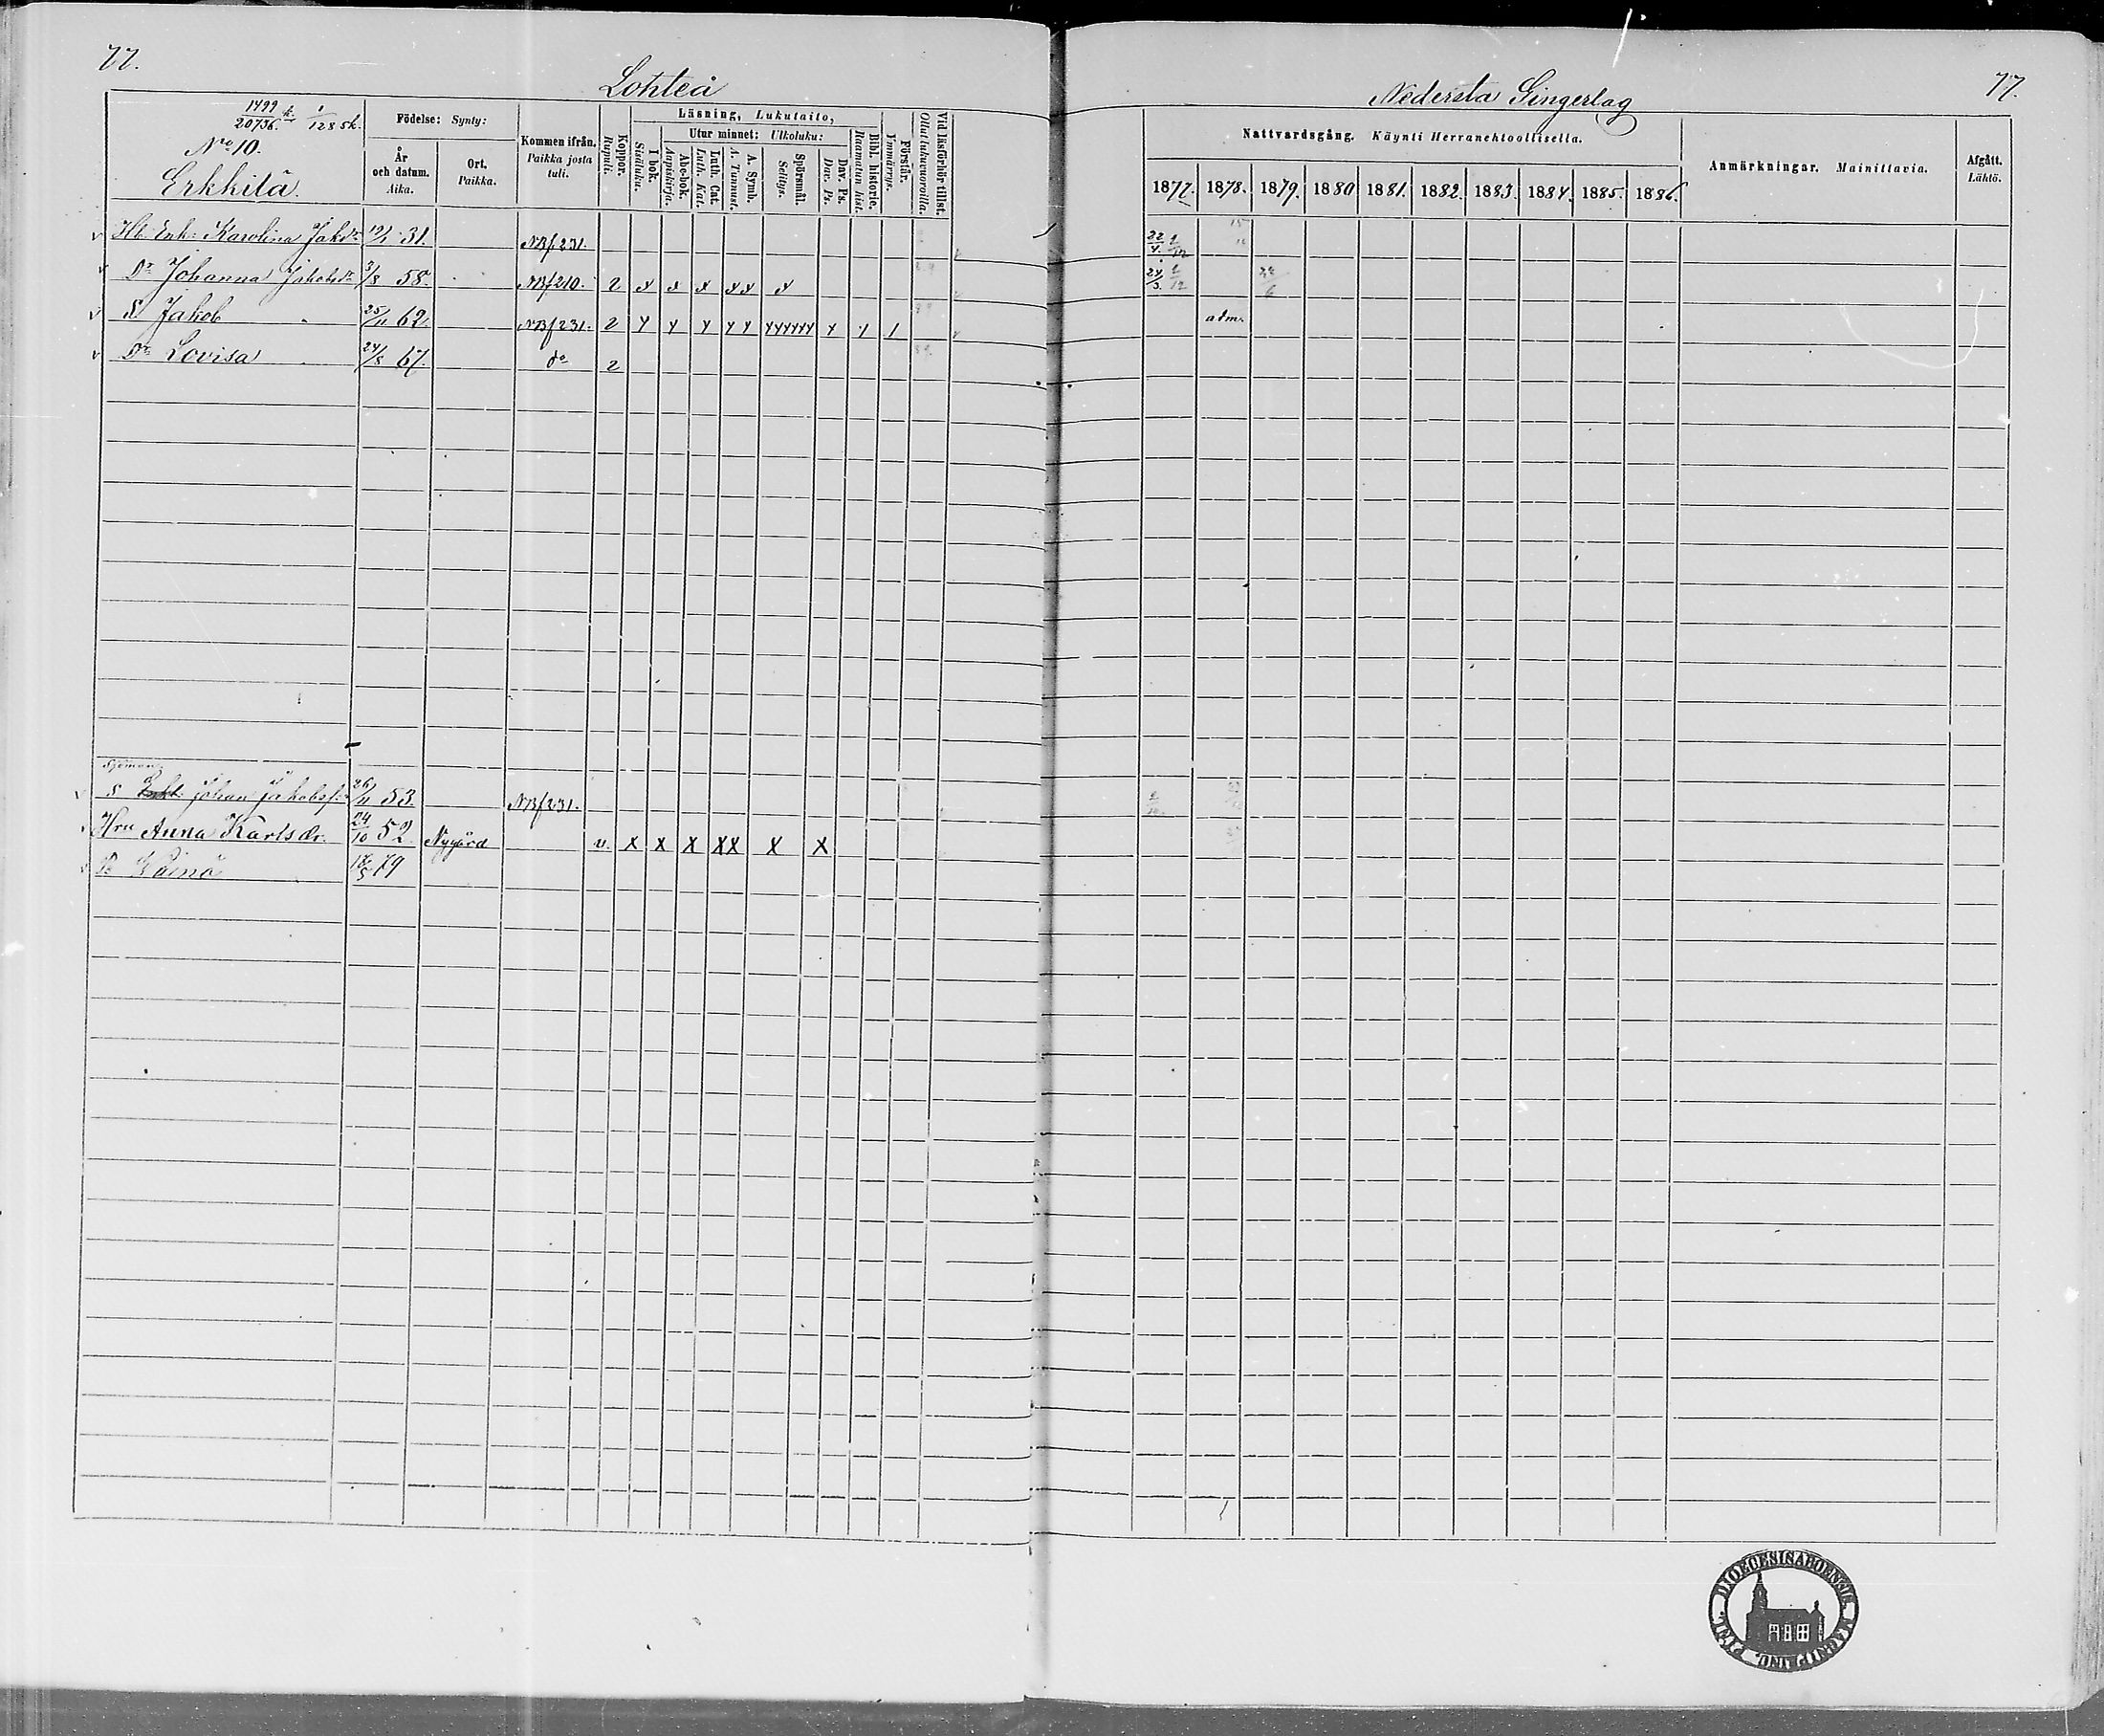 77.
Lohteå
Nedersta Gingerlag
77.
1499/20736 k. 1/128 sk.
No 10.
Erkkilä.
Födelse: Synty:
År och datum. Aika.
Ort. Paikka.
Kommen ifrån. Paikka josta tuli.
Koppor. Rupuli.
Läsning, Lukutaito,
I bok. Sisäluku.
Utur minnet: Ulkoluku:
Abc-bok. Aapiskirja.
Luth. Cat. Luth. Kat.
A. Symb. A. Tunnust.
Spörsmål. Selitys.
Dav. Ps. Dav. Ps.
Bibl. historie. Raamatun hist.
Förstår. Ymmärrys.
Vid läsförhör tillst. Ollut lukuvuoroilla.
Nattvardsgång. Käynti Herranehtoollisella.
1877. 1878. 1879. 1880 1881. 1882. 1883. 1884. 1885. 1886.
Anmärkningar. Mainittavia.
Afgått. Lähtö.
v Hb. Enk. Karolina Jakdr 19/1 31. NBf231. 22/4. 2/12
v Dr Johanna Jakobsdr 3/8 58. NBf210. 2 x x x xx x 24/3. 2/12 24/6
v S. Jakob 25/11 62. NBf231. 2 y y y y y yyyyyy y y 1 adm.
v Dr Lovisa 24/8 67. do 2
Sjöman
v S Johan Jakobss. 26/11 53. NBf231.
Hru Anna Karlsdr. 24/10 52. Nygård v. X X X XX X X
D. Wainö 18/5 79
DIOECESIS ABOENSIS